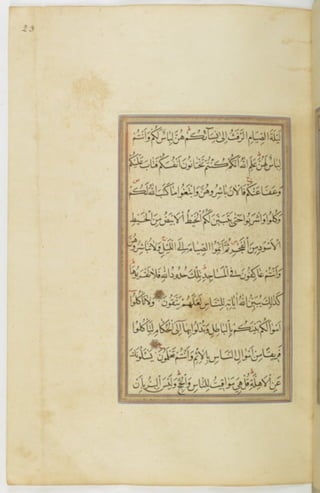 23
لَيْلَةَ الصِّيَامِ الرَّفَثُ إِلَى نِسَآئِكُمْ هُنَّ لِبَاسٌ لَكُمْ وَأَنْتُمْ
لِبَاسٌ لَهُنَّ عَلِمَ اللَّهُ أَنَّكُمْ كُنْتُمْ تَخْتَانُونَ أَنْفُسَكُمْ فَتَابَ عَلَيْكُمْ
وَعَفَا عَنْكُمْ فَالْآنَ بَاشِرُوهُنَّ وَابْتَغُوا مَا كَتَبَ اللَّهُ لَكُمْ
وَكُلُوا وَاشْرَبُوا حَتَّى يَتَبَيَّنَ لَكُمُ الْخَيْطُ الْأَبْيَضُ مِنَ الْخَيْطِ
الْأَسْوَدِ مِنَ الْفَجْرِ ثُمَّ أَتِمُّوا الصِّيَامَ إِلَى اللَّيْلِ وَلَا تُبَاشِرُوهُنَّ
وَأَنْتُمْ عَاكِفُونَ فِي الْمَسَاجِدِ تِلْكَ حُدُودُ اللَّهِ فَلَا تَقْرَبُوهَا
كَذَلِكَ يُبَيِّنُ اللَّهُ آيَاتِهِ لِلنَّاسِ لَعَلَّهُمْ يَتَّقُونَ وَلَا تَأْكُلُوا
أَمْوَالَكُمْ بَيْنَكُمْ بِالْبَاطِلِ وَتُدْلُوا بِهَا إِلَى الْحُكَّامِ لِتَأْكُلُوا
فَرِيقًا مِنْ أَمْوَالِ النَّاسِ بِالْإِثْمِ وَأَنْتُمْ تَعْلَمُونَ يَسْئَلُونَكَ
عَنِ الْأَهِلَّةِ قُلْ هِيَ مَوَاقِيتُ لِلنَّاسِ وَالْحَجِّ وَلَيْسَ الْبِرُّ بِأَنْ